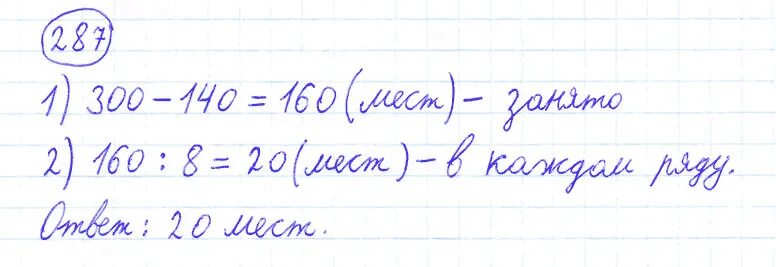 287
1) 300 - 140 = 160 (мест) - занято
2) 160 : 8 = 20 (мест) - в каждом ряду.
Ответ: 20 мест.